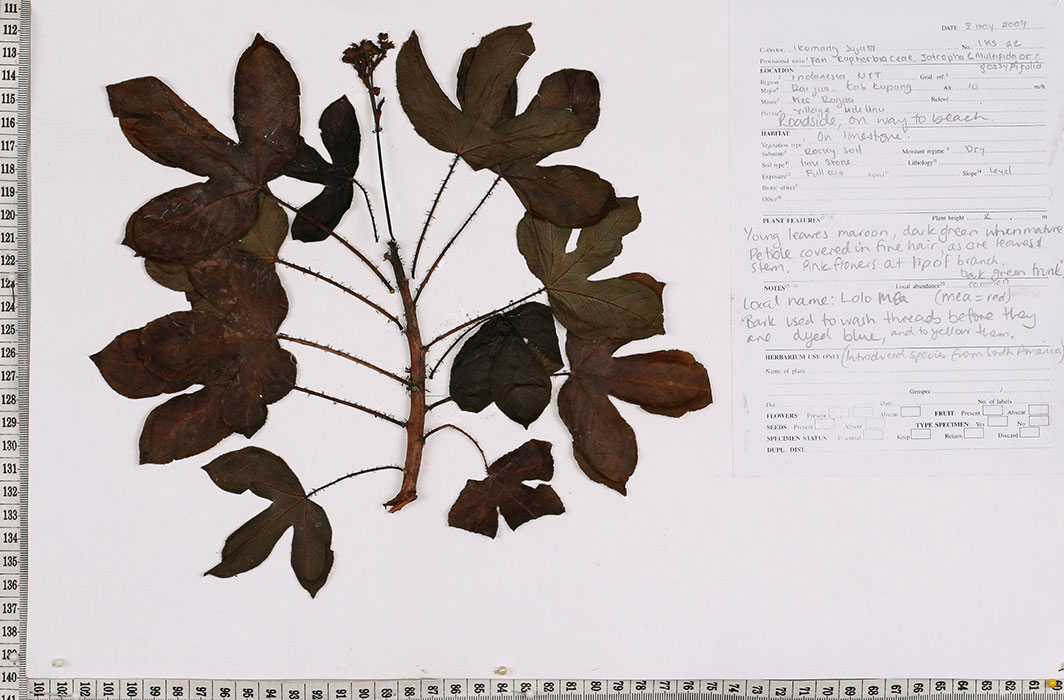 DATE: 3 may 2007
Collector: I Komang Sujata No. IKS 22
Provisional name Fam Euphorbiaceae, Jatropha multifida or
gossypifolia
LOCATION
Region Indonesia NTT Grid ref.
Major Kab Kupang Alt. 10 m/ft
Minor Kec Relevé
Precise Village
Roadside, on way to beach.
HABITAT On limestone.
Vegetation type
Substrate Rocky soil Moisture regime Dry
Soil type lime stone Lithology
Exposure Full sun Aspect Slope Level
Biotic effect
Other
PLANT FEATURES Plant height 2 m
Young leaves maroon, dark green when mature
Petiole covered in fine hair, as are leaves &
stem. Pink flowers at tip of branch.
Dark green trunk
NOTES Local abundance common
Local name: Lolo Mea (mea = red)
Bark used to wash threads before they
are dyed blue, and to yellow them.
HERBARIUM USE ONLY (Introduced species from South America)
Name of plant
Genspec /
Det. Date No. of labels
FLOWERS Present Absent FRUIT: Present Absent
SEEDS Present Absent TYPE SPECIMEN Yes No
SPECIMEN STATUS Essential Keep Return Discard
DUPL. DIST.
111
112
113
114
115
116
117
118
119
120
121
122
123
124
125
126
127
128
129
130
131
132
133
134
135
136
137
138
140
101 100 99 98 97 96 95 94 93 92 91 90 89 88 87 86 85 84 83 82 81 80 79 78 77 76 75 74 73 72 71 70 69 68 67 66 65 64 63 62 61